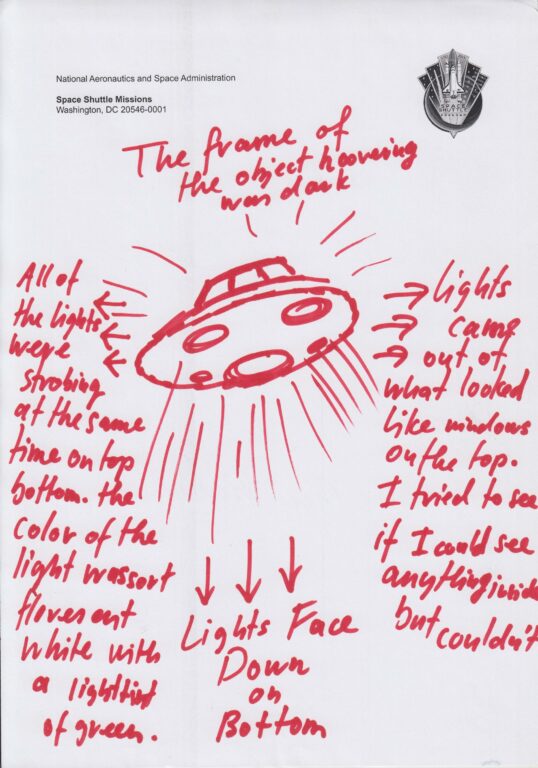 National Aeronautics and Space Administration
Space Shuttle Missions
Washington, DC 20546-0001
SPACE
SHUTTLE
The frame of
the object hoovering
was dark
All of
the lights
were
strobing
at the same
time on top
bottom. the
color of the
light was sort
floresent
white with
a light tint
of green.
lights
came
out of
what looked
like windows
on the top.
I tried to see
if I could see
anything inside
but couldn't
Lights Face
Down
on
Bottom